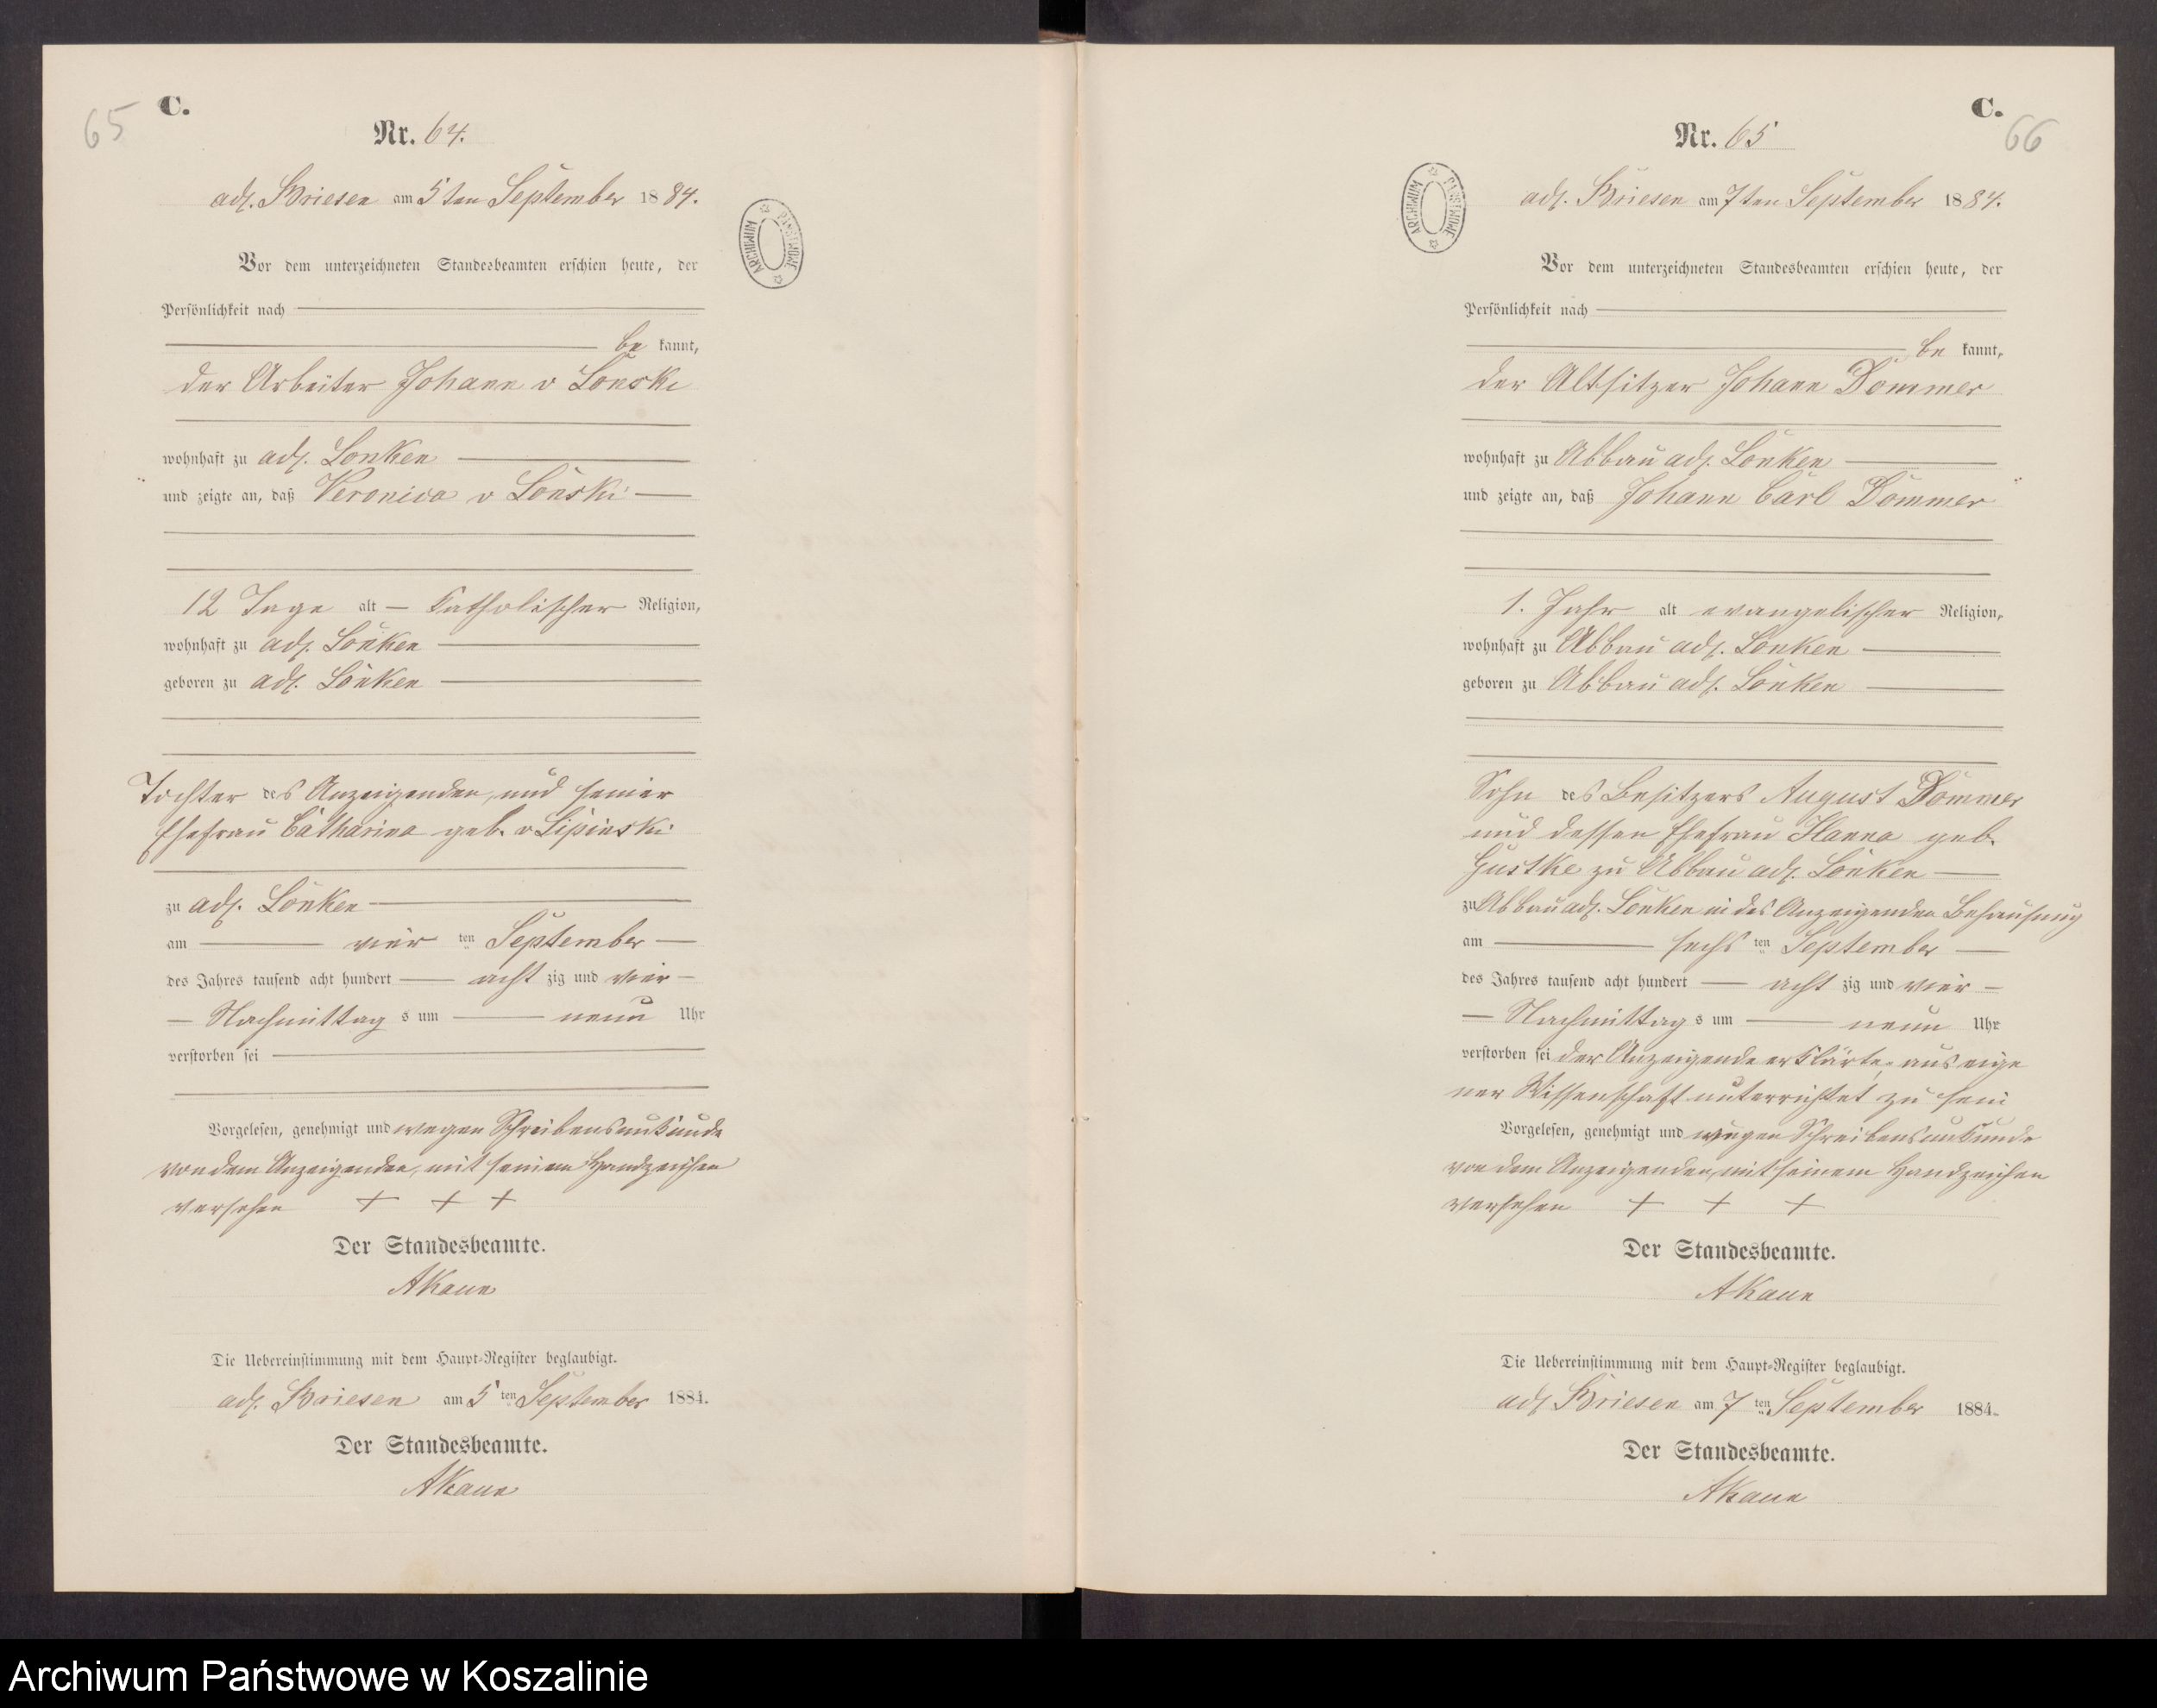 65
C.
Nr. 64.
adl. Briesen am 5ten September 1884.
ARCHIWUM PAŃSTWOWE
Vor dem unterzeichneten Standesbeamten erschien heute, der
Persönlichkeit nach
be kannt,
der Arbeiter Johann v Lonski
wohnhaft zu adl. Lonken
und zeigte an, daß Veronica v Lonski
12 Tage alt — katholischer Religion,
wohnhaft zu adl. Lonken
geboren zu adl. Lonken
Tochter des Anzeigenden, und seiner
Ehefrau Catharina geb. v Lipinski
zu adl. Lonken
am vier ten September
des Jahres tausend acht hundert acht zig und vier
Nachmittag s um neun Uhr
verstorben sei
Vorgelesen, genehmigt und wegen Schreibensunkunde
von dem Anzeigenden, mit seinem Handzeichen
versehen + + +
Der Standesbeamte.
AKaun
Die Uebereinstimmung mit dem Haupt-Register beglaubigt.
adl. Briesen am 5 ten September 1884.
Der Standesbeamte.
AKaun
C.
66
Nr. 65
adl. Briesen am 7ten September 1884.
ARCHIWUM PAŃSTWOWE
Vor dem unterzeichneten Standesbeamten erschien heute, der
Persönlichkeit nach
be kannt,
der Altsitzer Johann Dommer
wohnhaft zu Abbau adl. Lonken
und zeigte an, daß Johann Carl Dommer
1. Jahr alt evangelischer Religion,
wohnhaft zu Abbau adl. Lonken
geboren zu Abbau adl. Lonken
Sohn des Besitzers August Dommer
und dessen Ehefrau Hanna geb.
Gustke zu Abbau adl. Lonken
zu Abbau adl. Lonken in des Anzeigenden Behausung
am sechs ten September
des Jahres tausend acht hundert acht zig und vier
Nachmittag s um neun Uhr
verstorben sei der Anzeigende erklärte, aus eige
ner Wissenschaft unterrichtet zu sein
Vorgelesen, genehmigt und wegen Schreibensunkunde
von dem Anzeigenden, mit seinem Handzeichen
versehen + + +
Der Standesbeamte.
AKaun
Die Uebereinstimmung mit dem Haupt-Register beglaubigt.
adl Briesen am 7 ten September 1884.
Der Standesbeamte.
AKaun
Archiwum Państwowe w Koszalinie